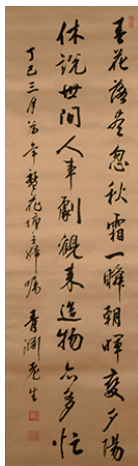 春花落盡忽秋霜一瞬朝暉變夕陽
休説世間人事劇觀来造物亦多忙
丁巳三月為 花 主婦嘱 青淵老生